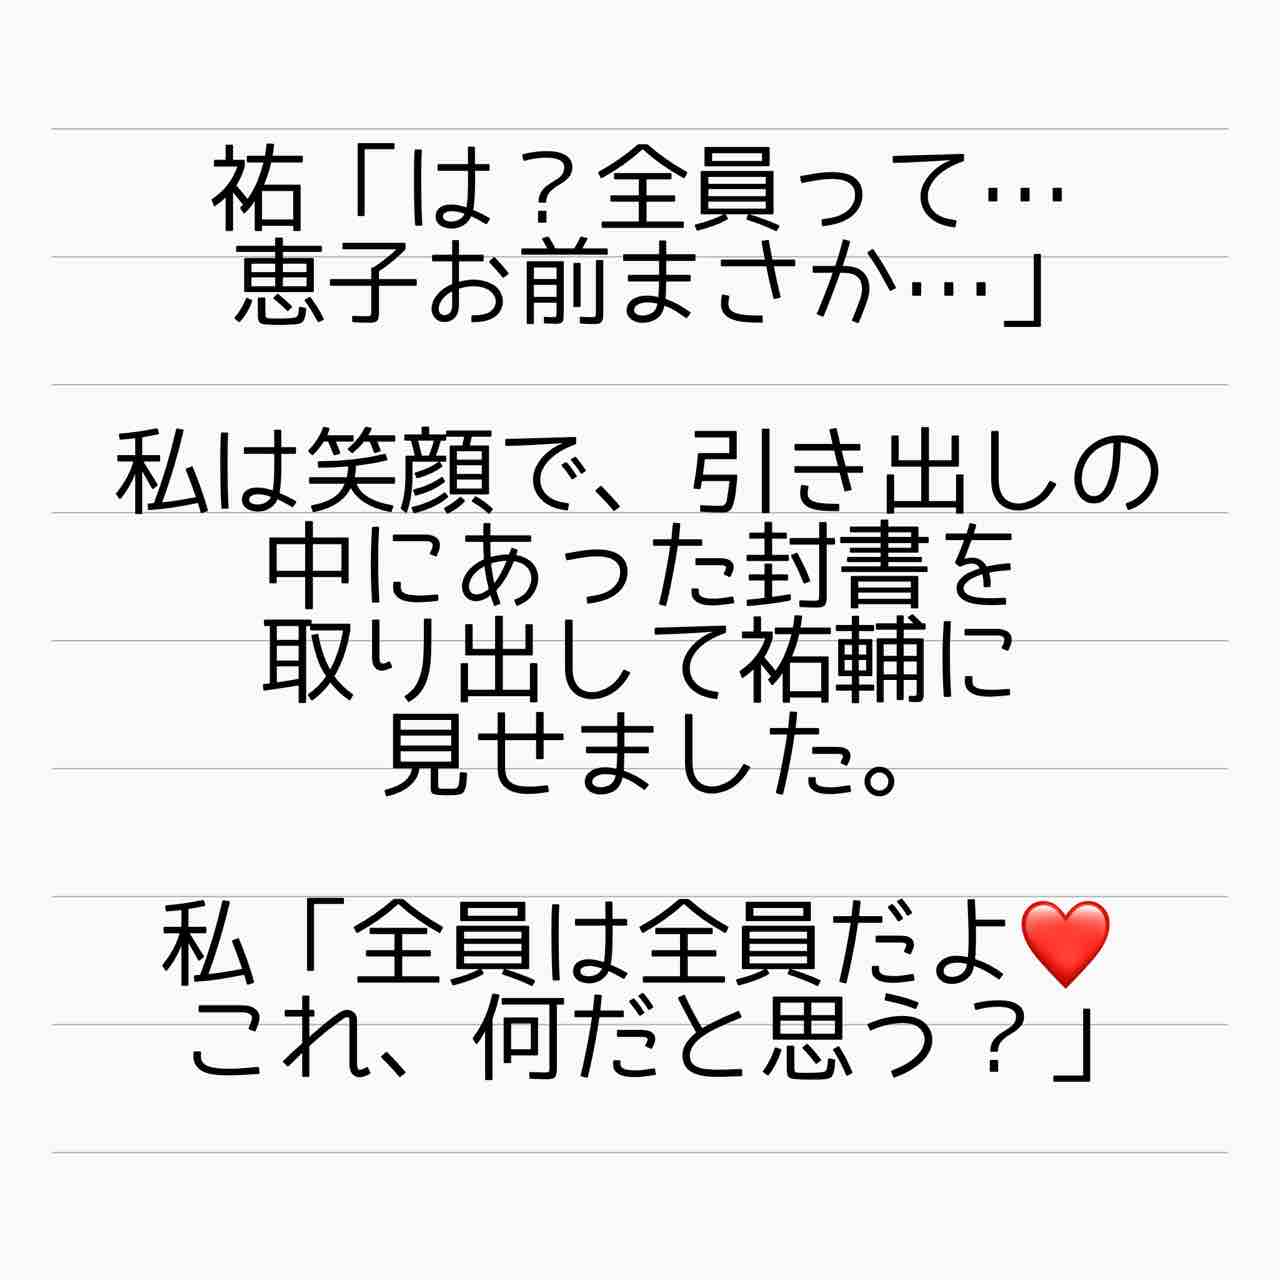 祐「は？全員って…
恵子お前まさか…」
私は笑顔で、引き出しの
中にあった封書を
取り出して祐輔に
見せました。
私「全員は全員だよ❤️
これ、何だと思う？」